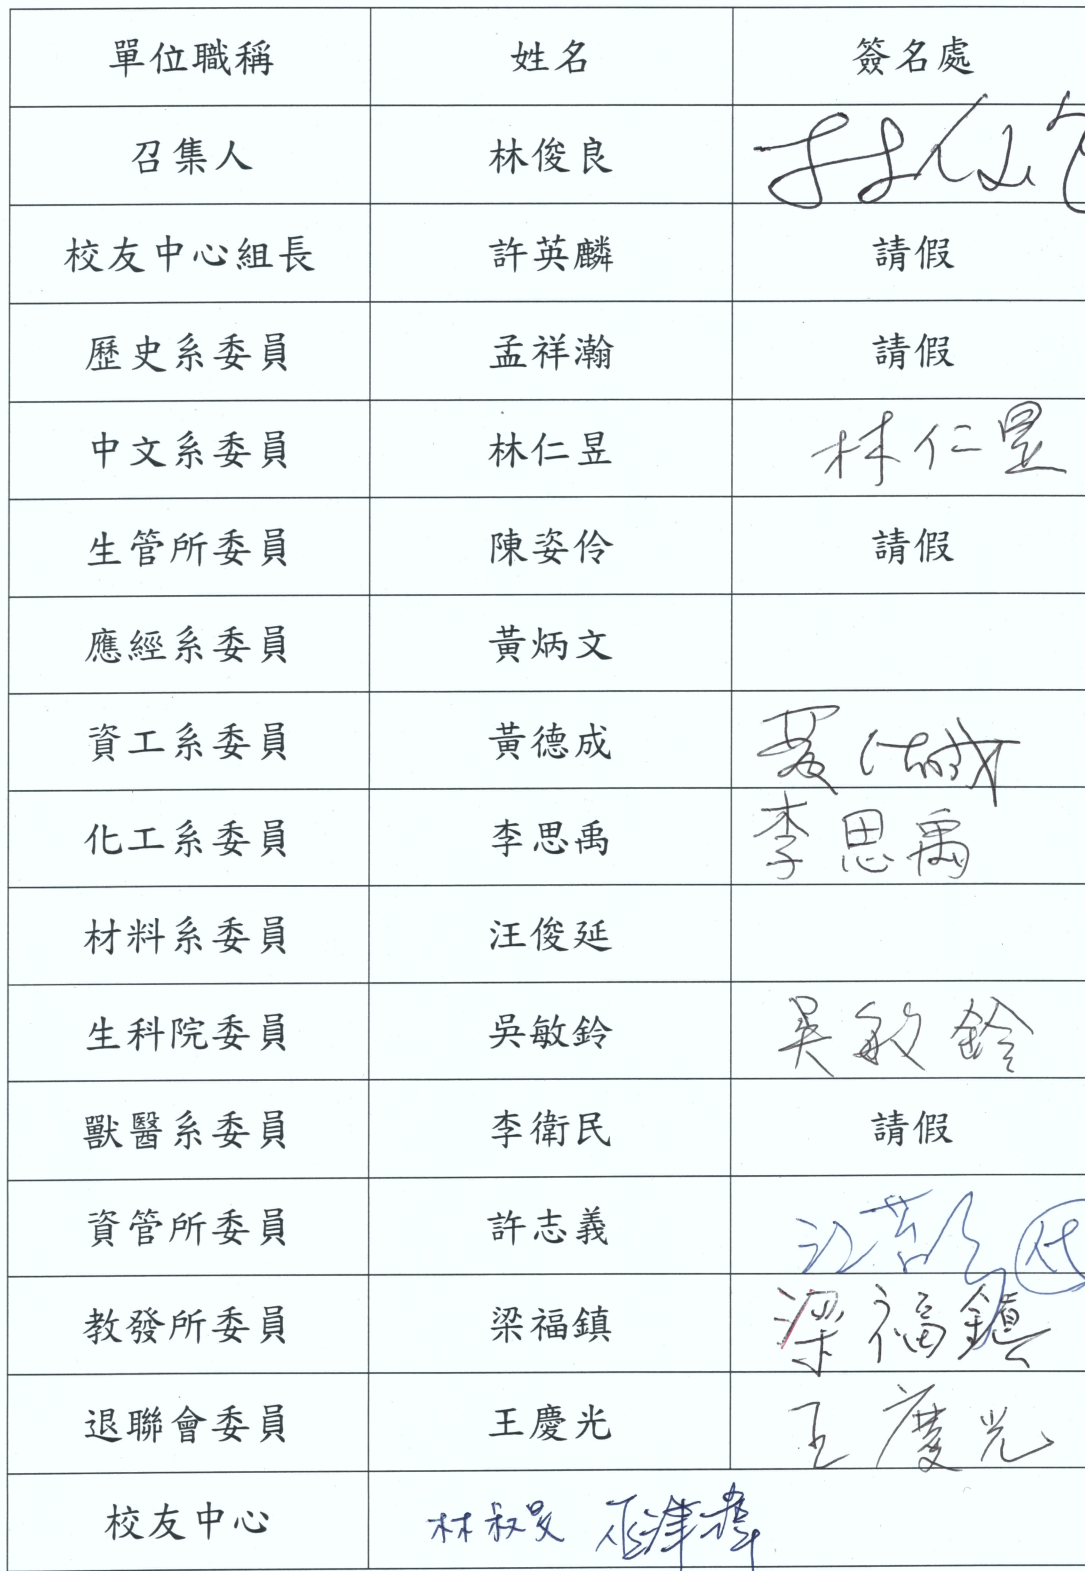 單位職稱 姓名 簽名處
召集人 林俊良 林俊良
校友中心組長 許英麟 請假
歷史系委員 孟祥瀚 請假
中文系委員 林仁昱 林仁昱
生管所委員 陳姿伶 請假
應經系委員 黃炳文
資工系委員 黃德成 黃德成
化工系委員 李思禹 李思禹
材料系委員 汪俊延
生科院委員 吳敏鈴 吳敏鈴
獸醫系委員 李衛民 請假
資管所委員 許志義 代
教發所委員 梁福鎮 梁福鎮
退聯會委員 王慶光 王慶光
校友中心